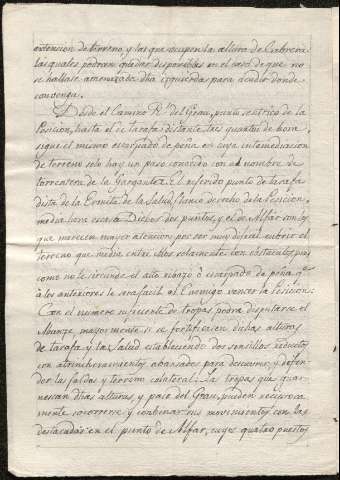 extencion de terreno, y las que ocupen la altura de Cabrera
las quales podran quedar disponibles en el caso de que no
se hallase amenazada dha izquierda para acudir donde
convenga.
Desde el Camino Rl. del Grau, punto centrico de la
Posicion, hasta el de tarafa distante tres quartos de hora,
sigue el mismo escarpado de peña en cuya intermediacion
de terreno solo hay un paso conocido con el nombre de
torrentera de la Garganta. El referido punto de tarafa
dista de la Ermita de la Salud, flanco derecho de la Posicion,
media hora escasa. Dichos dos puntos, y el de Alfar son los
que merecen mayor atencion por ser muy dificil cubrir el
terreno que media entre ellos solamente con obstaculos, pues
como no le circunde el alto ribazo ò escarpado de peña qe.
à los anteriores le sera facil al Enemigo vencer la Posicion:
Con el numero suficiente de tropas podra disputarse el
Abanze, mayormente si se fortificasen dichas alturas
de tarafa y la Salud estableciendo dos sencillos reductos
con atrincheramientos abanzados para descubrir, y defen-
der las faldas y terreno colateral. Las tropas que guar-
nescan dhas alturas, y paso del Grau, pueden reciproca
mente socorrerse y conbinar sus movimientos con las
destacadas en el punto de Alfar, cuyos quatro puestos